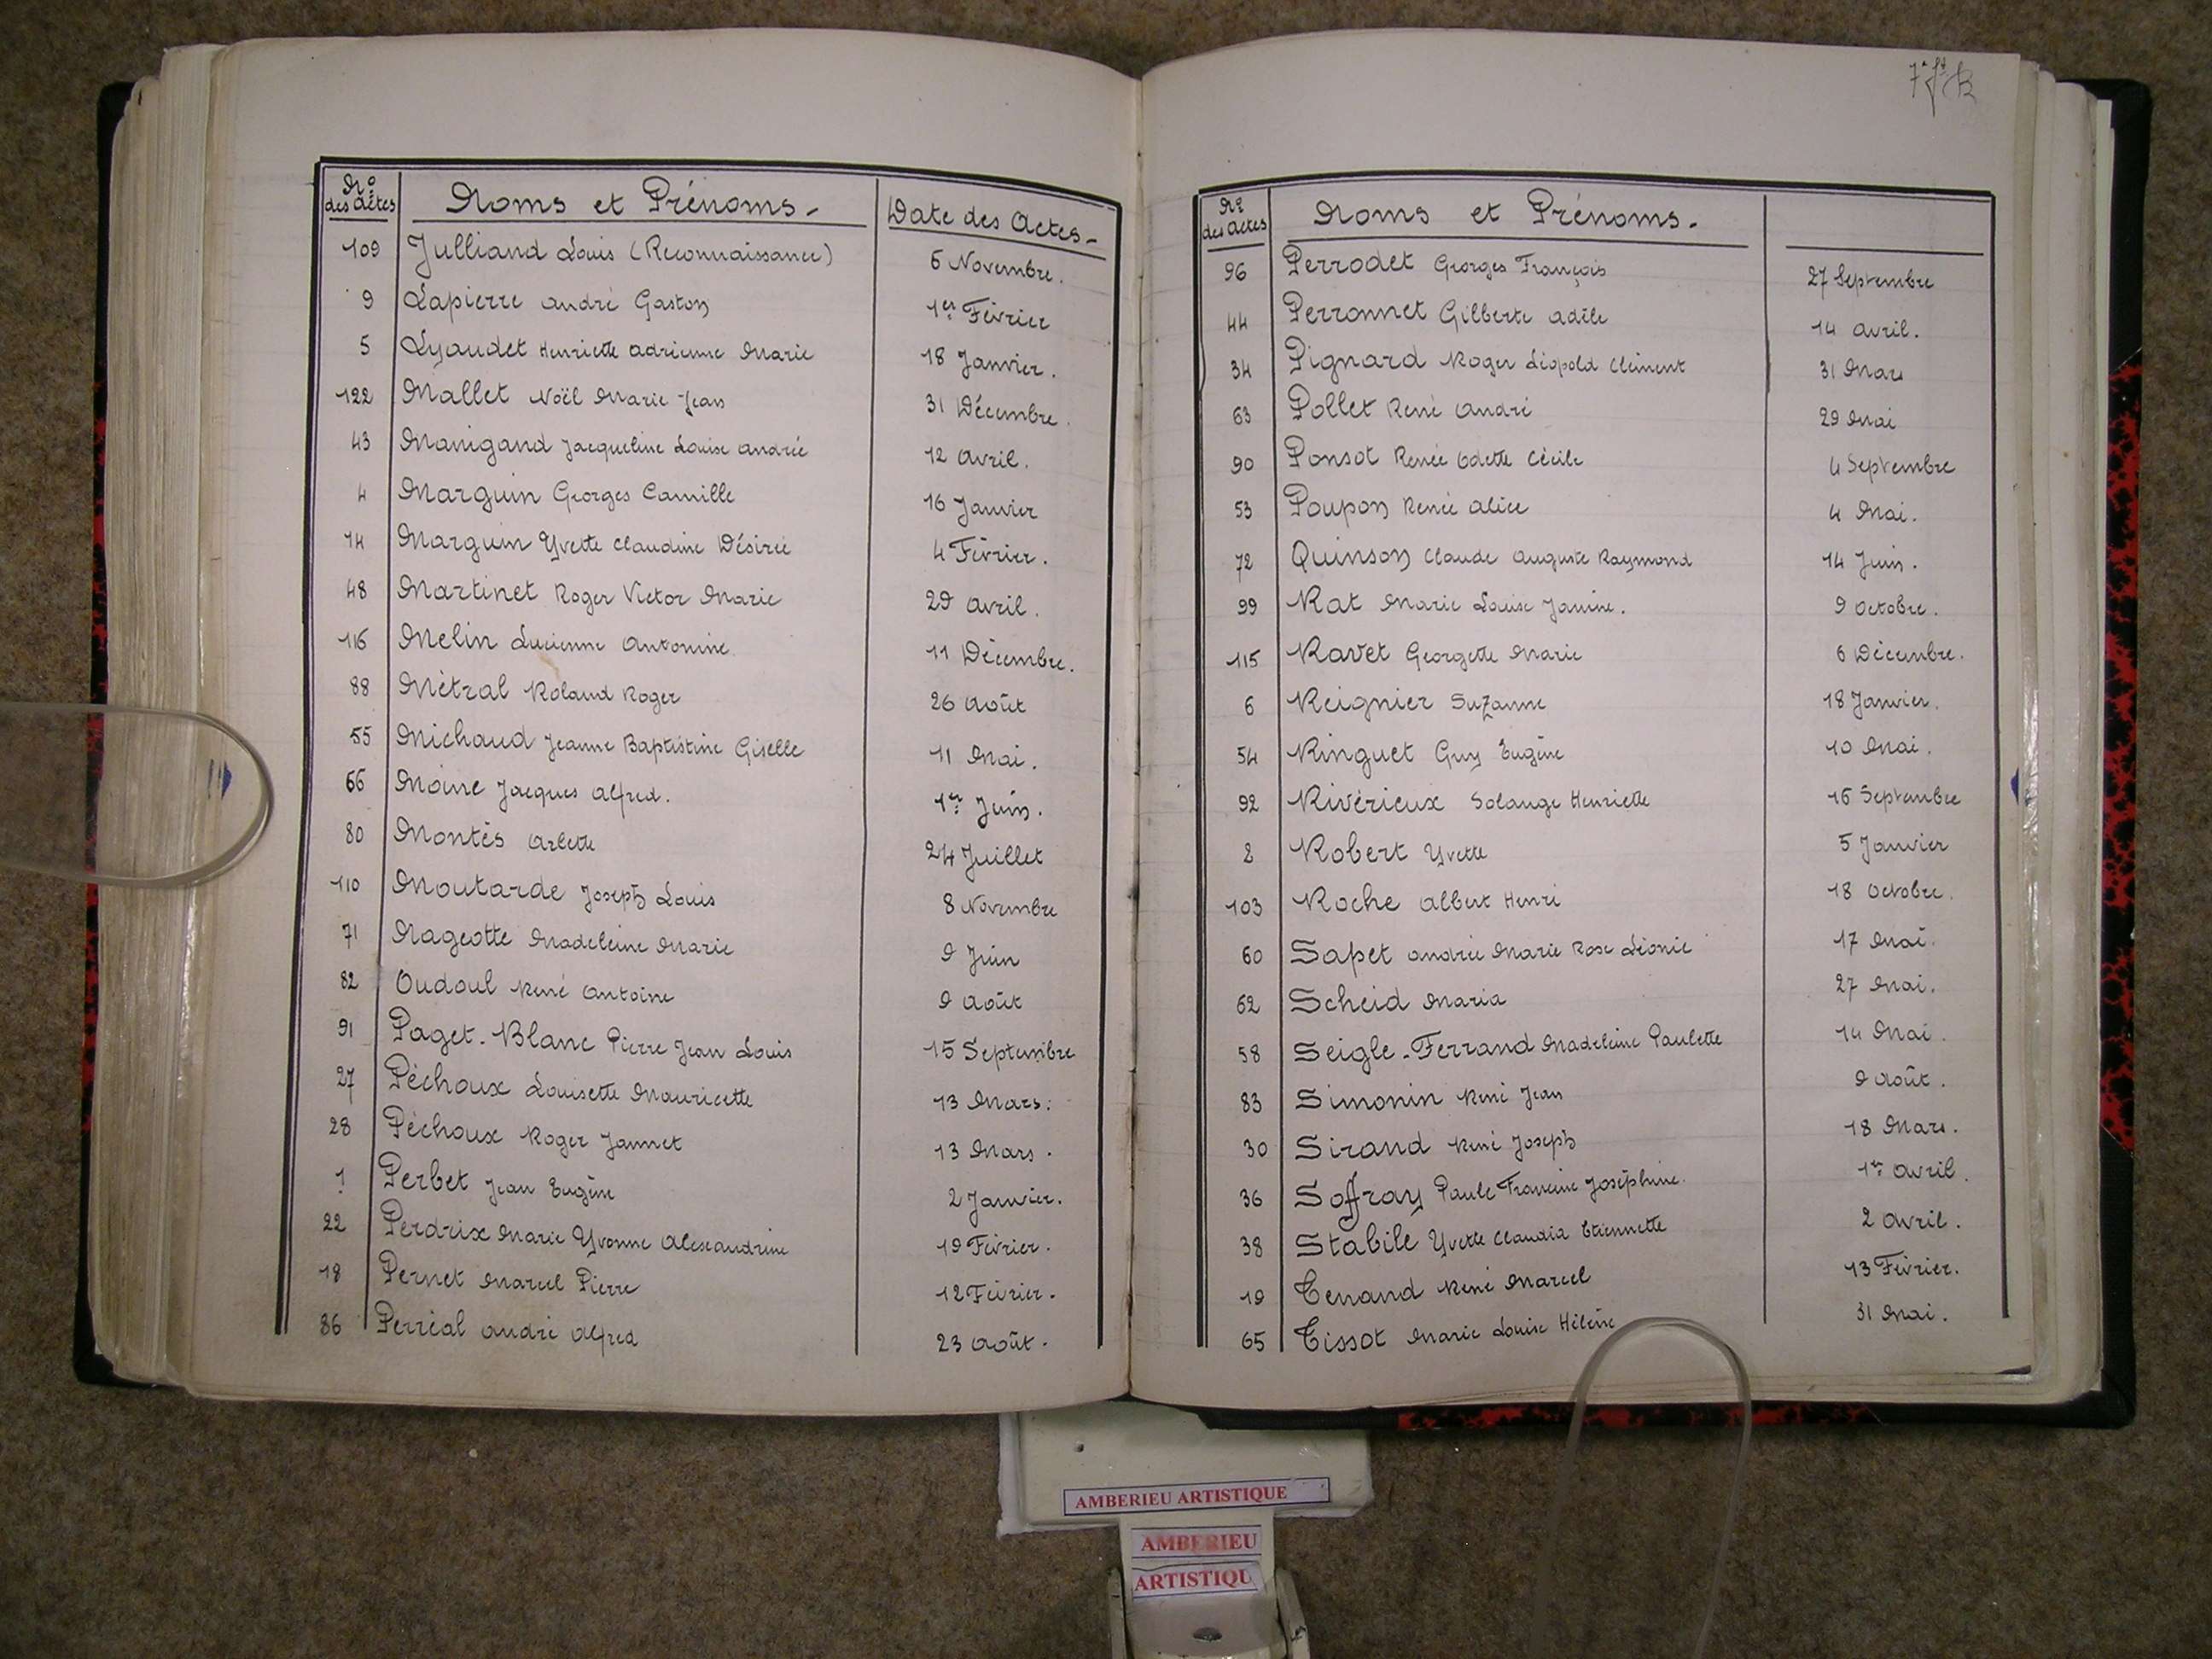 Nº des actes Noms et Prénoms - Date des Actes -
109 Julliand Louis (Reconnaissance) 6 Novembre.
9 Lapierre André Gaston 1er Février
5 Lyaudet Henriette Adrienne Marie 18 Janvier.
122 Mallet Noël Marie-Jean 31 Décembre.
43 Manigand Jacqueline Louise Andrée 12 Avril.
4 Marguin Georges Camille 16 Janvier
14 Marguin Yvette Claudine Désirée 4 Février.
48 Martinet Roger Victor Marie 29 Avril.
116 Melin Lucienne Antonine 11 Décembre.
88 Métral Roland Roger 26 Août
55 Michaud Jeanne Baptistine Giselle 11 Mai.
66 Moine Jacques Alfred. 1er Juin.
80 Montès Arlette 24 Juillet
110 Moutarde Joseph Louis 8 Novembre
71 Nageotte Madeleine Marie 9 Juin
82 Oudoul René Antoine 9 Août
91 Paget-Blanc Pierre Jean Louis 15 Septembre
27 Péchoux Louisette Mauricette 13 Mars.
28 Péchoux Roger Jannet 13 Mars.
1 Perbet Jean Eugène 2 Janvier.
22 Perdrix Marie Yvonne Alexandrine 19 Février.
18 Pernet Marcel Pierre 12 Février.
86 Perréal André Alfred 23 Août.
Nº des actes Noms et Prénoms -
96 Perrodet Georges François 27 Septembre
44 Perronnet Gilberte Adèle 14 Avril.
34 Pignard Roger Léopold Clément 31 Mars
63 Pollet René André 29 Mai
90 Ponsot Renée Odette Cécile 4 Septembre
53 Poupon Renée Alice 4 Mai.
72 Quinson Claude Auguste Raymond 14 Juin.
99 Rat Marie Louise Janine. 9 Octobre.
115 Ravet Georgette Marie 6 Décembre.
6 Reignier Suzanne 18 Janvier.
54 Ringuet Guy Eugène 10 Mai.
92 Rivérieux Solange Henriette 16 Septembre
2 Robert Yvette 5 Janvier
103 Roche Albert Henri 18 Octobre.
60 Sapet Andrée Marie Rose Léonie 17 Mai.
62 Scheid Maria 27 Mai.
58 Seigle-Ferrand Madeleine Paulette 14 Mai.
83 Simonin René Jean 9 Août.
30 Sirand René Joseph 18 Mars.
36 Soffray Paule Francine Joséphine. 1er Avril.
38 Stabile Yvette Claudia Etiennette 2 Avril.
19 Tenand René Marcel 13 Février.
65 Tissot Marie Louise Hélène 31 Mai.
AMBERIEU ARTISTIQUE
AMBERIEU
ARTISTIQU